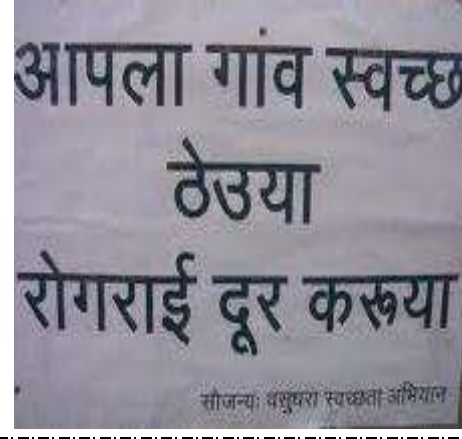 आपला गांव स्वच्छ
ठेउया
रोगराई दूर करूया
सौजन्यः वसुधरा स्वच्छता अभियान